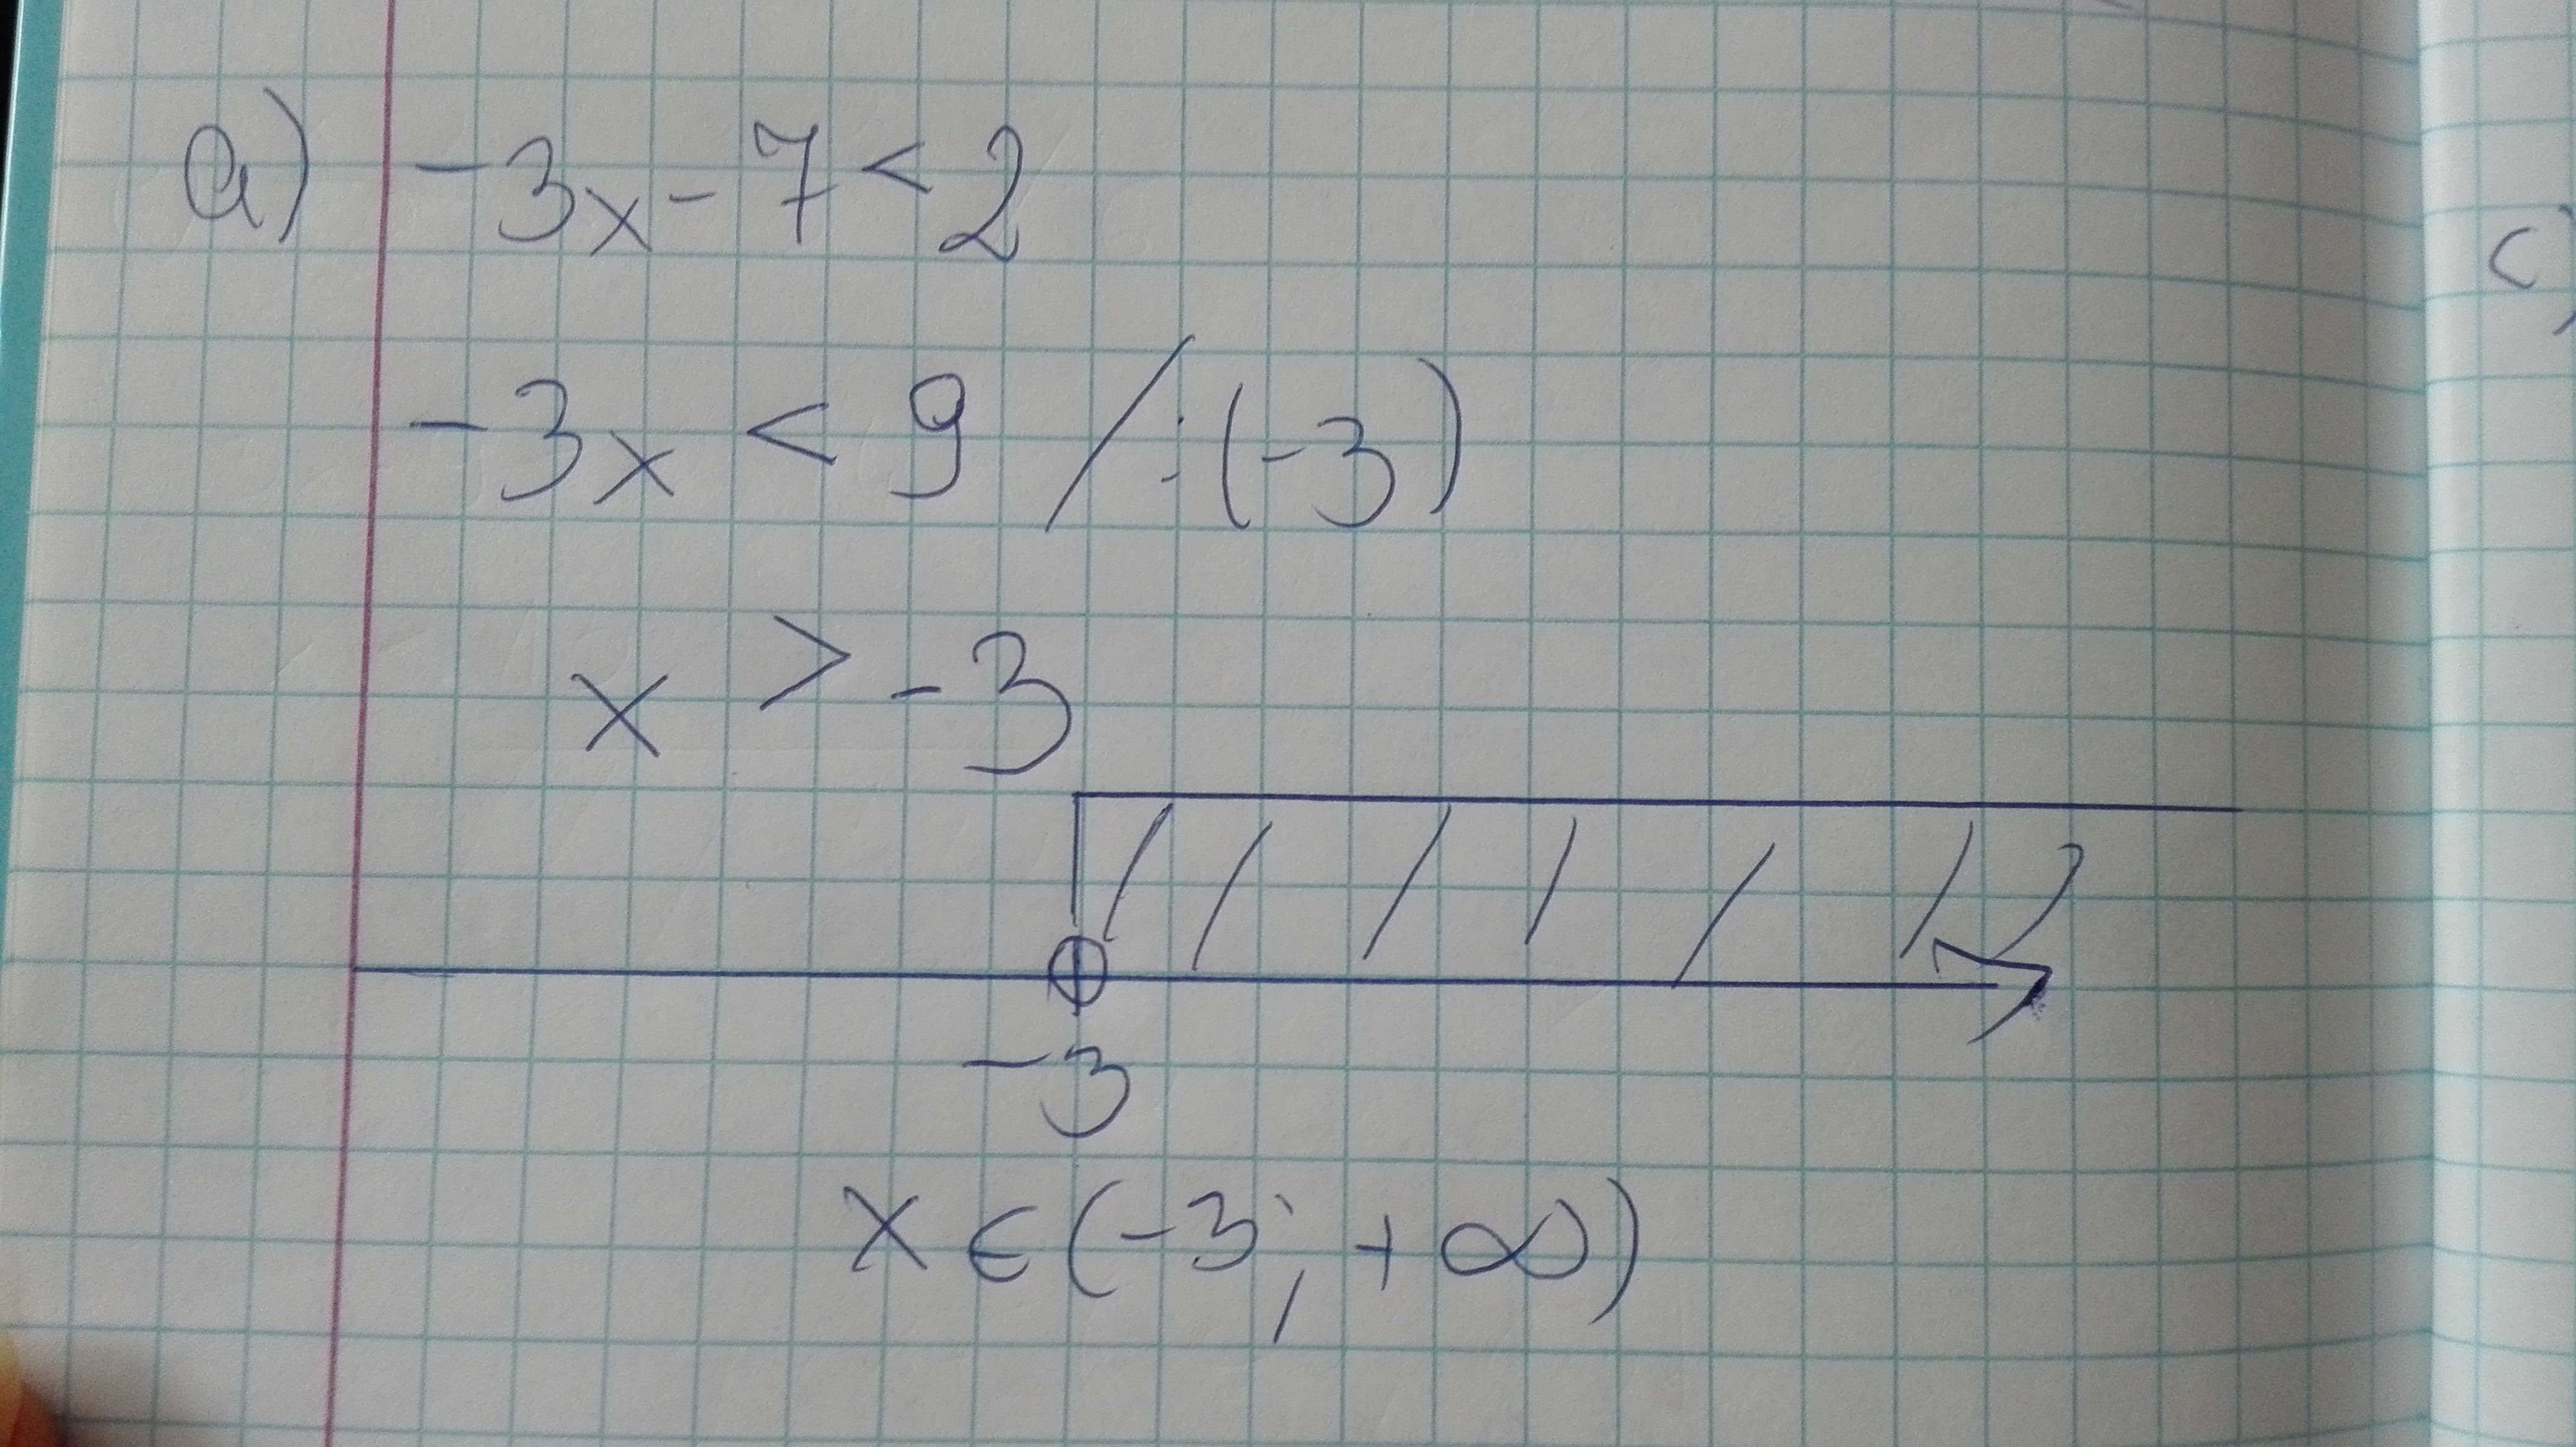 a) -3x - 7 < 2
-3x < 9 / :(-3)
x > -3
-3
x ∈ (-3; +∞)
c)